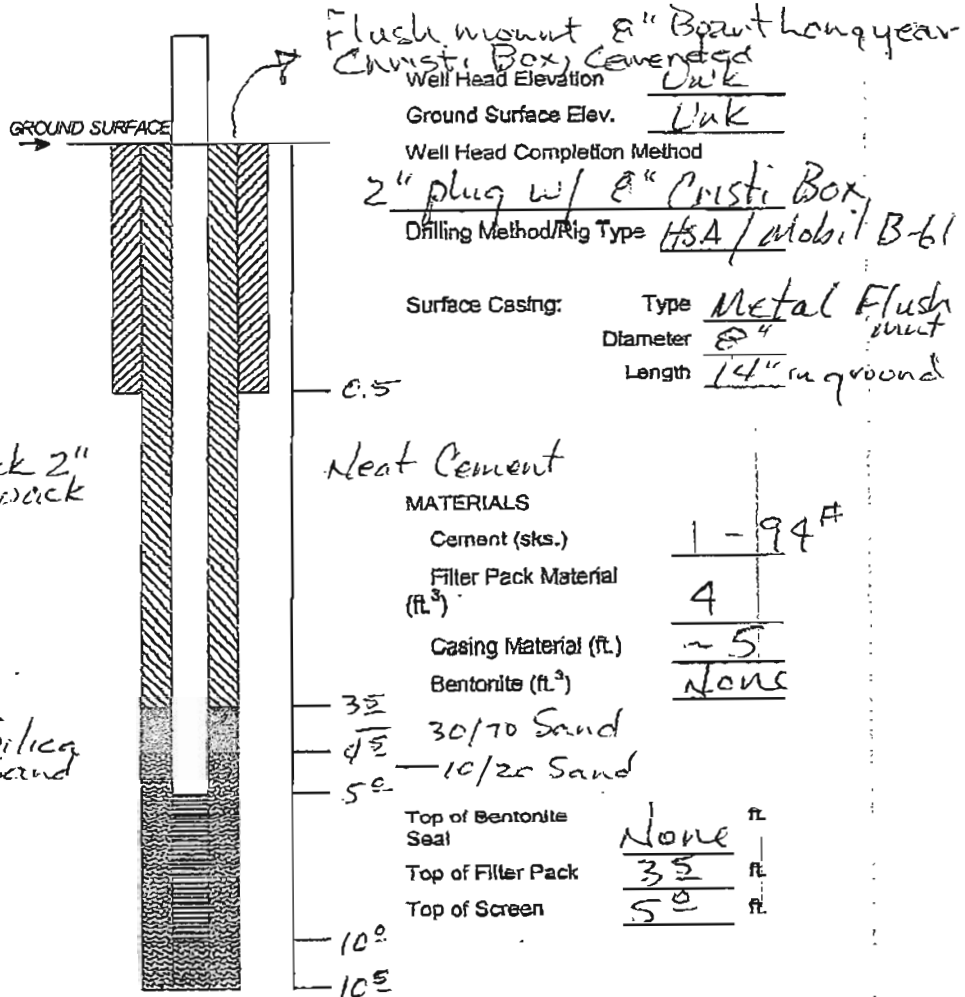 Flush mount 8" Boart Longyear
Christi Box, Cemented
Well Head Elevation Unk
GROUND SURFACE
Ground Surface Elev. Unk
Well Head Completion Method
2" plug w/ 8" Cristi Box
Drilling Method/Rig Type HSA / Mobil B-61
Surface Casing: Type Metal Flush mut
Diameter 8"
Length 14" in ground
0.5
2"
pack
Neat Cement
MATERIALS
Cement (sks.) 1 - 94#
Filter Pack Material
(ft.³) 4
Casing Material (ft.) ~ 5
Bentonite (ft.³) None
3 5
30/70 Sand
Silica
Sand
4 5
10/20 Sand
5 0
Top of Bentonite
Seal None ft.
Top of Filter Pack 3 5 ft.
Top of Screen 5 0 ft.
10 0
10 5